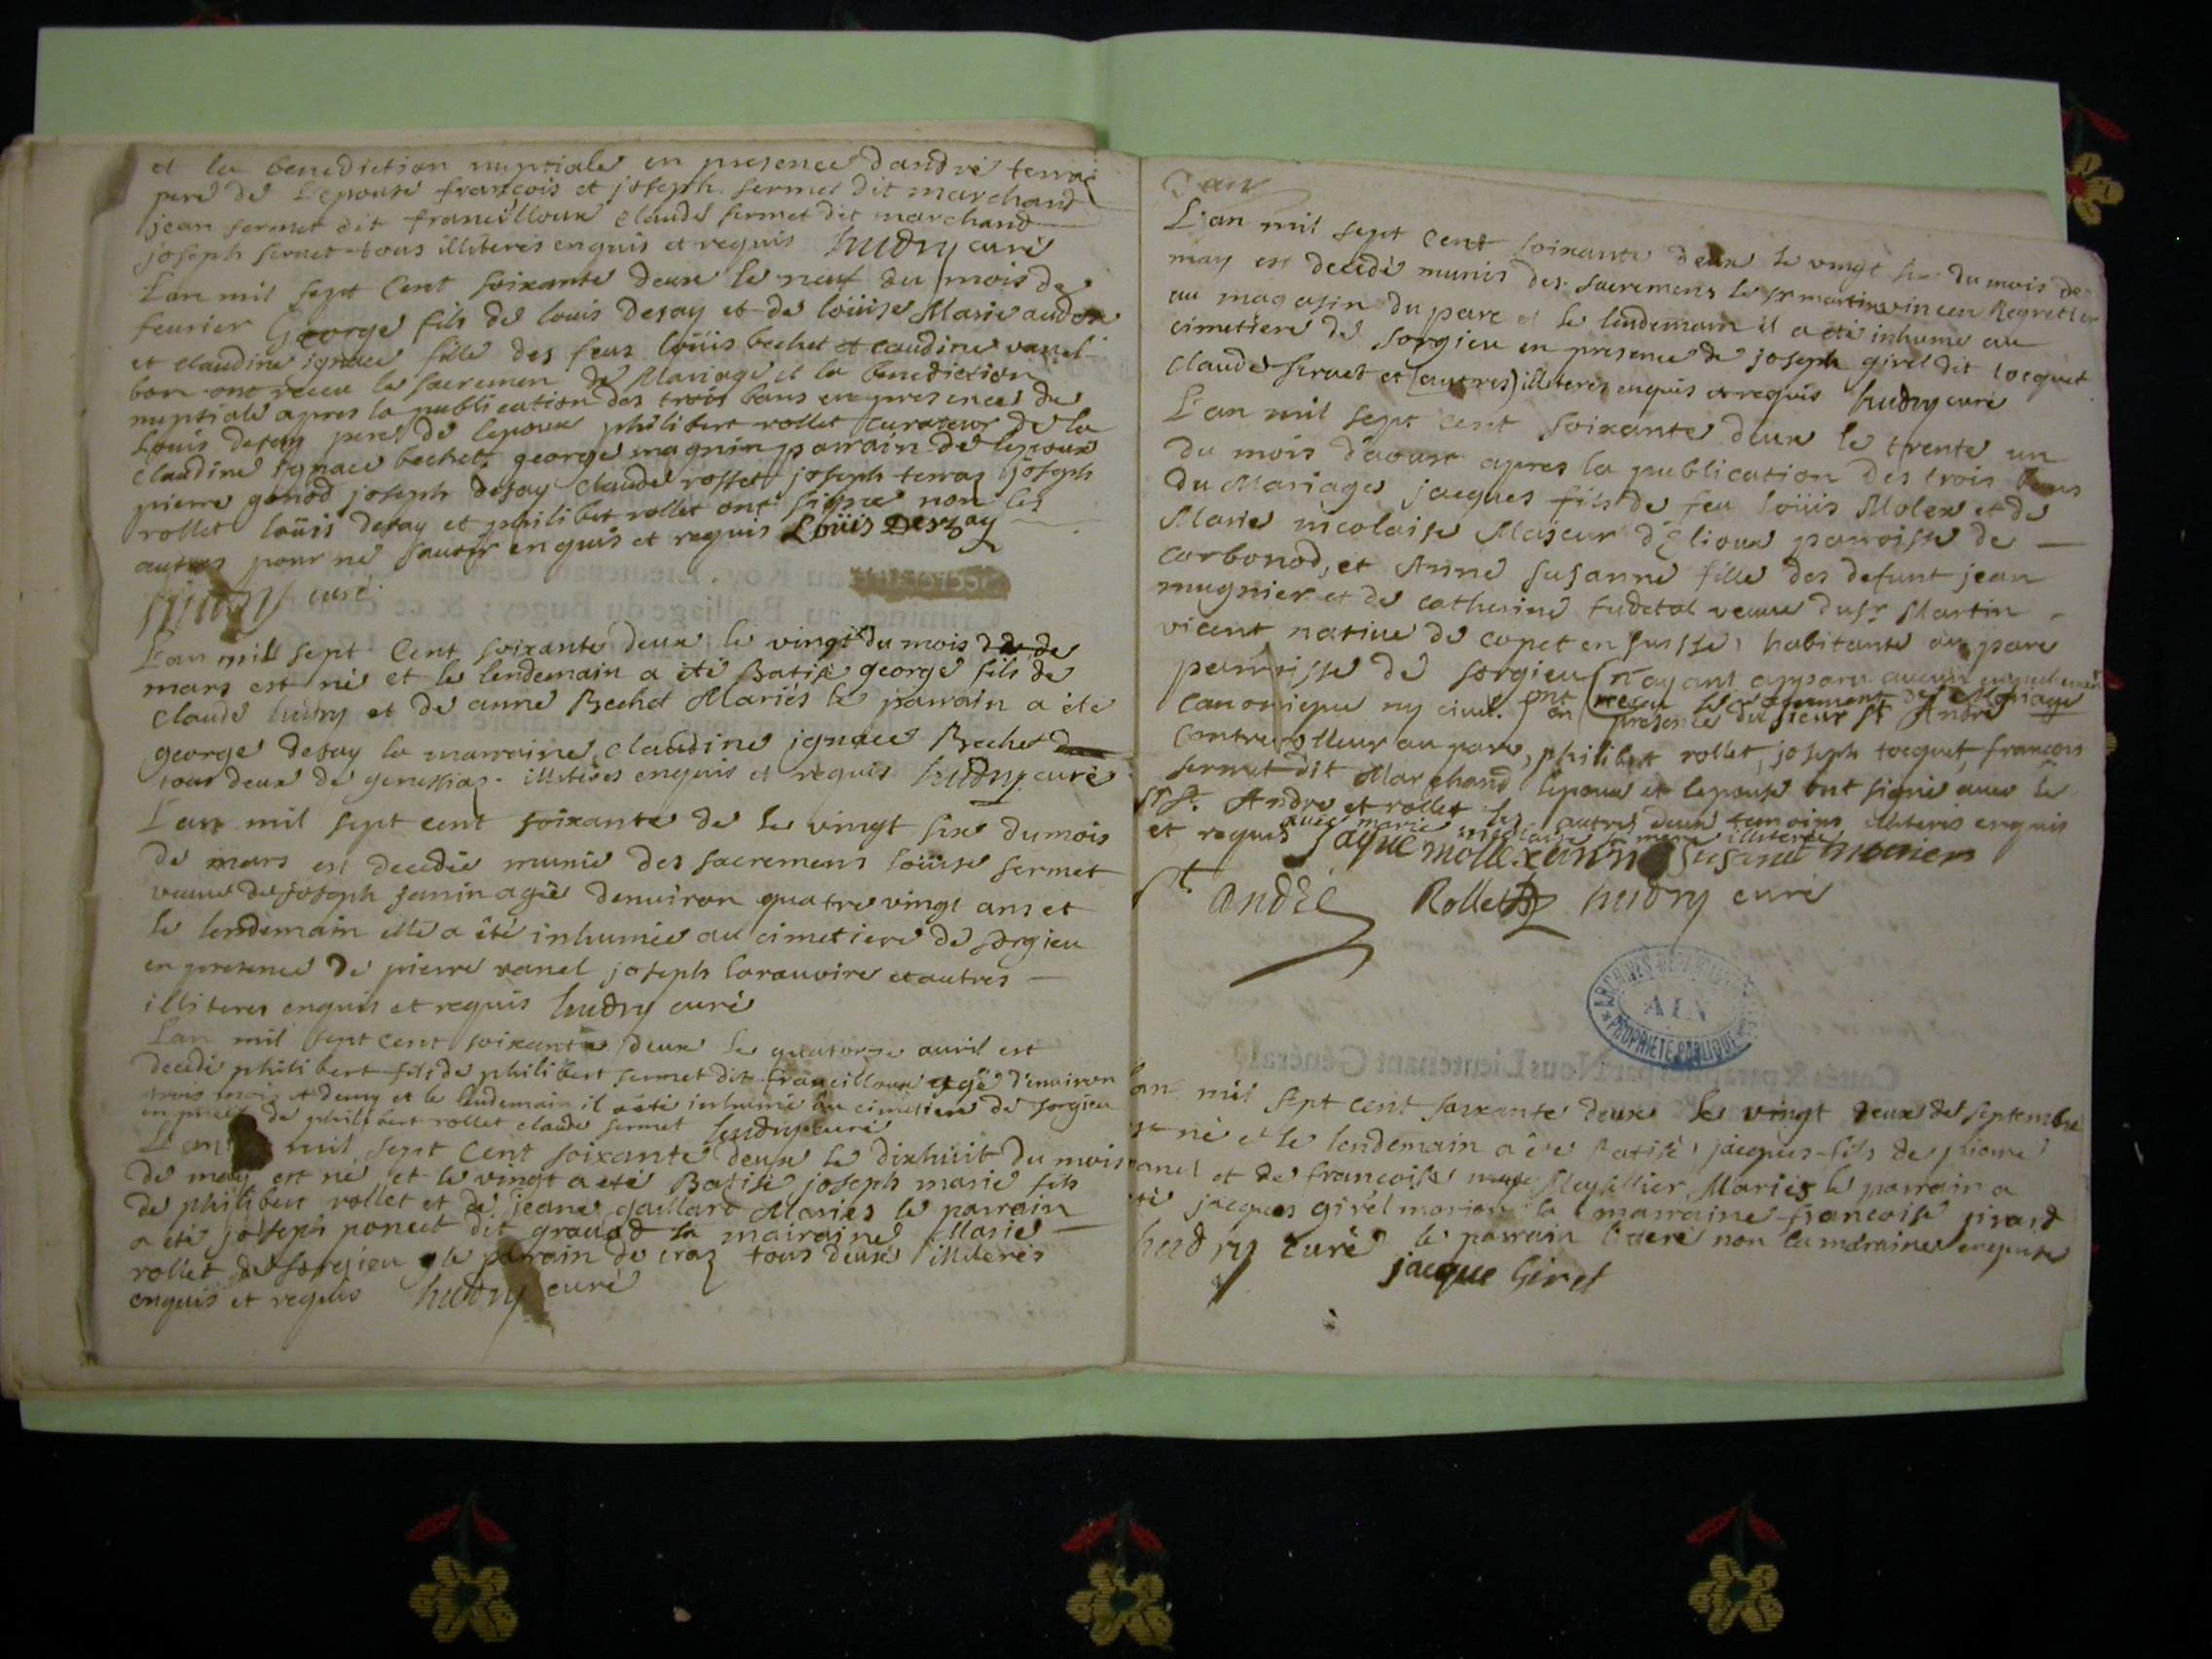 et la benediction nuptiale en presence dandré terraz
pere de L'epouse françois et joseph sermet dit marchand
jean sermet dit francilloux claude sermet dit marchand
joseph servet tous illiteres enquis et requis hudry curé
Lan mil sept Cent soixante deux le neuf du mois de
feurier George fils de louis desay et de loüise Marie
et claudine ignace fille des feus loüis bechet et caudine vanel
bon ont receu le sacremen de Mariage et la benediction
nuptiale apres la publication des trois bans en presences de
Louis desay pere de lepoux philibert rollet curateur de la
claudine ignace bechet, george magnin parrain de lepoux
pierre gonod joseph desay claude rosset joseph terraz joseph
rollet loüis desay et philibet rollet ont signe non les
autres pour ne sauoir enquis et requis Loüis Deszay
hudry curé
Lan mil sept Cent soixante deux le vingt du mois de
mars est né et le lendemain a été Batisé george fils de
claude hudry et de anne Bechet Mariés le parrain a été
george desay la marraine claudine ignace Bechet
tous deux de genissiaz. illitérés enquis et requis hudry curé
L'an mil sept cent soixante de le vingt six du mois
de mars est decedée munie des sacremens loüise sermet
veuue de joseph janin agée denuiron quatre vingt ans et
le lendemain elle a été inhumée au cimetiere de sorgieu
en presence de pierre vanel joseph larauoire et autres
illiteres enquis et requis hudry curé
Lan mil sept cent soixante deux le quatorze auril est
decedé philibert fils de philibert sermet dit francilloux agé d'enuiron
trois mois et demy et le lendemain il a été inhumé au cimetiere de sorgieu
en presce de philibert rollet claude sermet hudry curé
L'an mil sept Cent soixante deux le dixhuit du mois
de may est né et le vingt a eté Batisé joseph marie fils
de philibert rollet et de jeane gaillard Mariés le parrain
a été joseph poncet dit grauod la mairaine Marie
rollet de sorgieu le parrain de craz tous deux illiterés
enquis et requis hudry curé
L'an
L'an mil sept Cent soixante deux le vingt six du mois de
may est decedé munis des sacremens le sr martin vincen Regrettier
au magasin du parc et le lendemain il a été inhumé au
cimetiere de sorgieu en presence de joseph girel dit tocquet
claude servet et (autres) illiteres enquis et requis hudry curé
L'an mil sept cent soixante deux le trente un
du mois daoust apres la publication des trois bans
du Mariages jacques fils de feu loüis Molex et de
Marie nicolaise Majeur d'Elioux parroisse de
corbonod, et Anne susanne fille des defunt jean
mugnier et de catherine veuue du sr Martin
vicent natiue de copet en suisse, habitante au parc
parroisse de sorgieu (n'ayant apparu aucun empechement
canonique ny ciuil.) ont receu le sacrement de Mariage
en presence du sieur st André
Controolleur au parc, philibert rollet, joseph tocquet, francois
sermet dit Marchand l'epoux et lepouse ont signé auec le
sr st. Andre et rollet les autres deux temoins illiteres enquis
et requis auec marie nicolaise sa mere illiterée
jaque mollex anne susane monier
st. andré Rollet hudry curé
ARCHIVES DEPARTEMENTALES
AIN
PROPRIETE PUBLIQUE
lan mil sept cent soixante deux le vingt deux de septembre
est né et le lendemain a été Batisé jacques fils de pierre
vanel et de francoise Meyillier Mariés le parrain a
été jacques girel marion la marraine francoise girard
hudry curé le parrain literé non la maraine enquise
jacque Girel